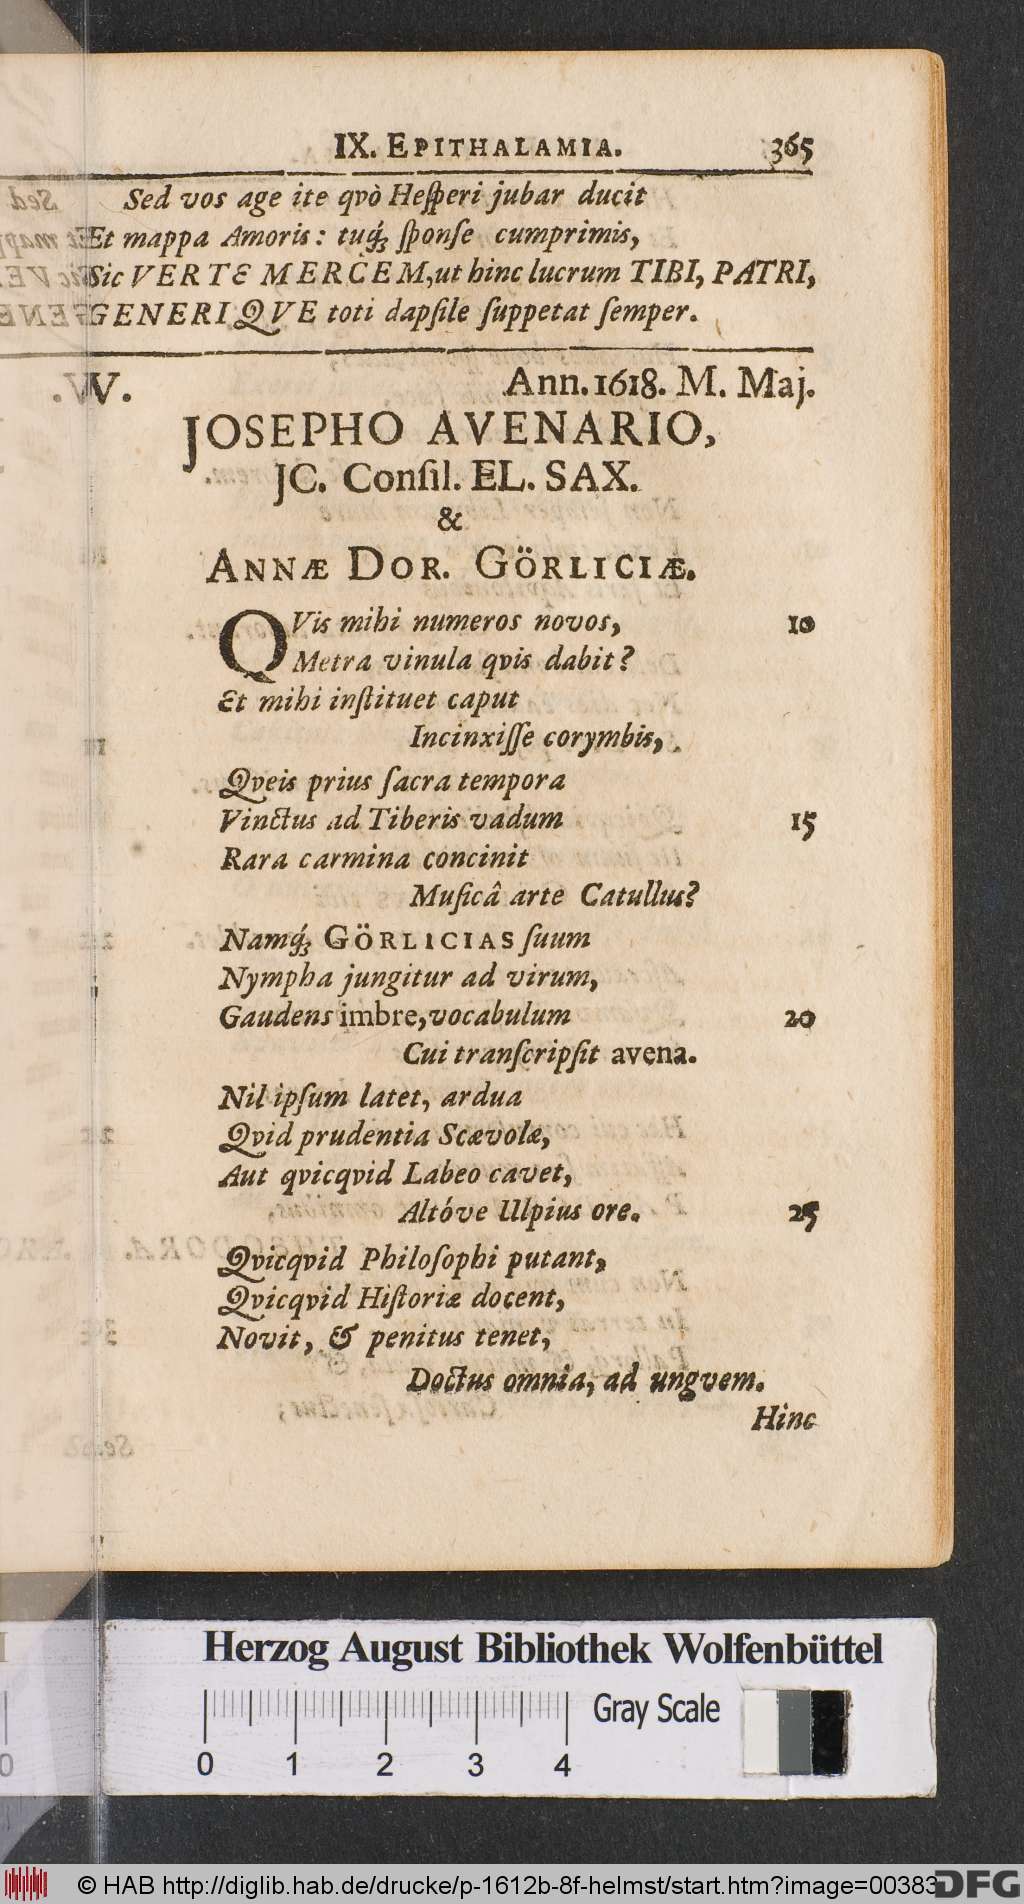 IX. EPITHALAMIA. 365
Sed vos age ite qvò Heſperi jubar ducit
Et mappa Amoris: tuq́; ſponſe cumprimis,
Sic VERTE MERCEM, ut hinc lucrum TIBI, PATRI,
GENERIQVE toti dapſile ſuppetat ſemper.
V. Ann. 1618. M. Maj.
JOSEPHO AVENARIO,
JC. Conſil. EL. SAX.
&
ANNÆ DOR. GÖRLICIÆ.
QVis mihi numeros novos, 10
Metra vinula qvis dabit?
Et mihi inſtituet caput
Incinxiſſe corymbis,
Qveis prius ſacra tempora
Vinctus ad Tiberis vadum 15
Rara carmina concinit
Muſicâ arte Catullus?
Namq́; GÖRLICIAS ſuum
Nympha jungitur ad virum,
Gaudens imbre, vocabulum 20
Cui tranſcripſit avena.
Nil ipſum latet, ardua
Qvid prudentia Scævolæ,
Aut qvicqvid Labeo cavet,
Altóve Ulpius ore. 25
Qvicqvid Philoſophi putant,
Qvicqvid Hiſtoriæ docent,
Novit, & penitus tenet,
Doctus omnia, ad ungvem.
Hinc
Herzog August Bibliothek Wolfenbüttel
Gray Scale
0 1 2 3 4
© HAB http://diglib.hab.de/drucke/p-1612b-8f-helmst/start.htm?image=00383
DFG